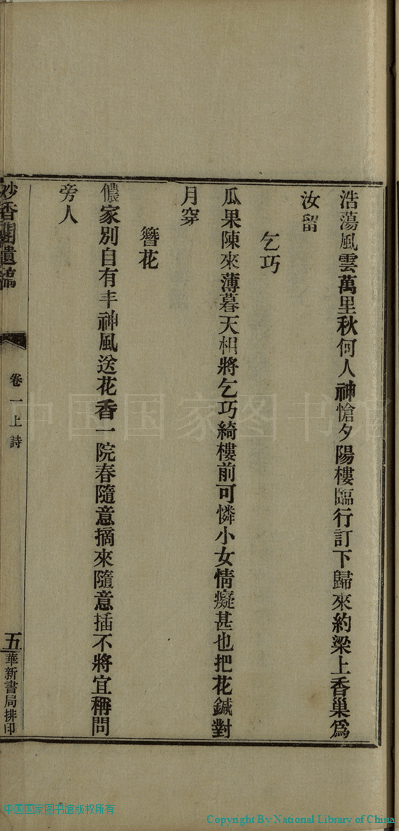 浩蕩風雲萬里秋何人神愴夕陽樓臨行訂下歸來約梁上香巢爲
汝留
乞巧
瓜果陳來薄暮天相將乞巧綺樓前可憐小女情癡甚也把花鍼對
月穿
簪花
儂家別自有丰神風送花香一院春隨意摘來隨意插不將宜稱問
旁人
妙香閣遺稿
卷一上詩
五
華新書局排印
中国国家图书馆
中国国家图书馆版权所有
Copyright By National Library of China